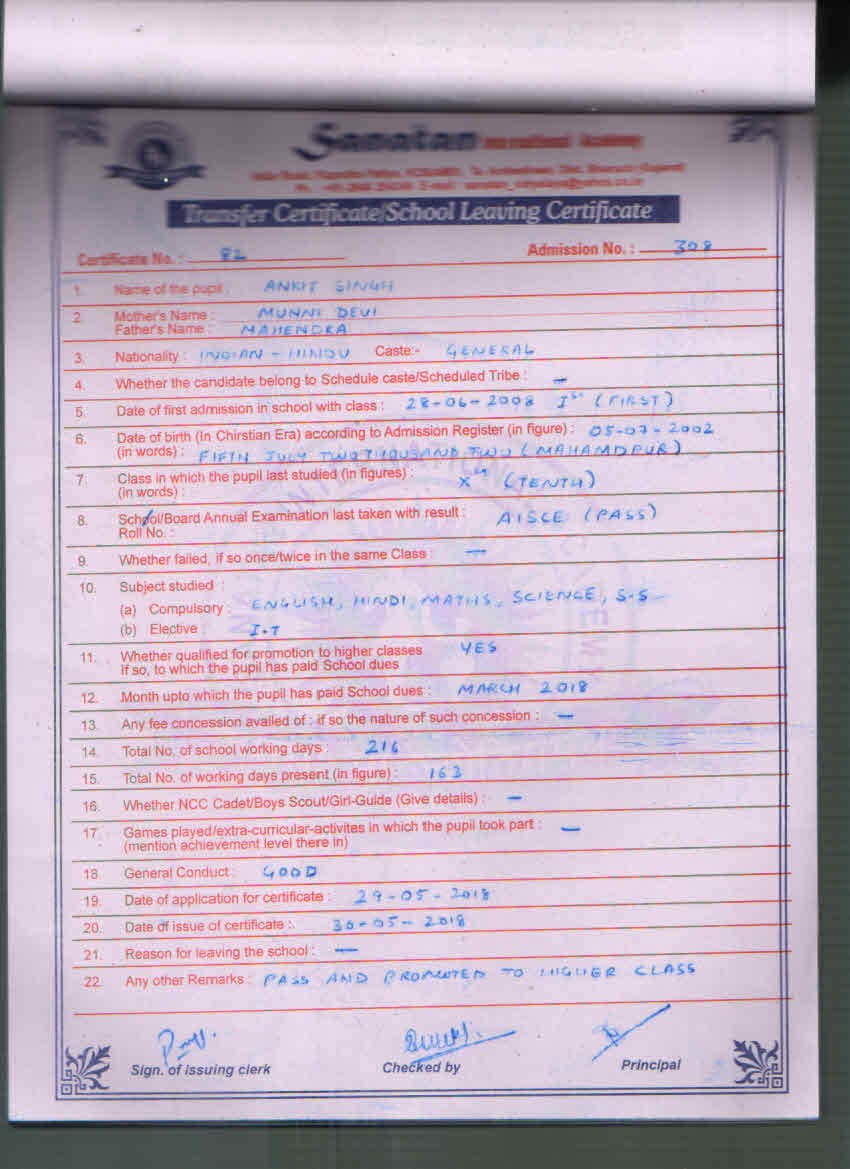 Sanatan International Academy
Transfer Certificate/School Leaving Certificate
Certificate No. : 82 Admission No. : 308
1. Name of the pupil : ANKIT SINGH
2. Mother's Name : MUNNI DEVI
Father's Name : MAHENDRA
3. Nationality : INDIAN - HINDU Caste:- GENERAL
4. Whether the candidate belong to Schedule caste/Scheduled Tribe : —
5. Date of first admission in school with class : 28-06-2008 Ist (FIRST)
6. Date of birth (In Chirstian Era) according to Admission Register (in figure) : 05-07-2002
(in words) : FIFTH JULY TWO THOUSAND TWO (MAHAMDPUR)
7. Class in which the pupil last studied (in figures) : Xth (TENTH)
(in words) :
8. School/Board Annual Examination last taken with result : AISCE (PASS)
Roll No. :
9. Whether failed, if so once/twice in the same Class : —
10. Subject studied :
(a) Compulsory : ENGLISH, HINDI, MATHS, SCIENCE, S.S
(b) Elective : I.T
11. Whether qualified for promotion to higher classes YES
If so, to which the pupil has paid School dues
12. Month upto which the pupil has paid School dues : MARCH 2018
13. Any fee concession availed of : if so the nature of such concession : —
14. Total No. of school working days : 216
15. Total No. of working days present (in figure) : 163
16. Whether NCC Cadet/Boys Scout/Girl-Guide (Give details) : —
17. Games played/extra-curricular-activites in which the pupil took part : —
(mention achievement level there in)
18. General Conduct : GOOD
19. Date of application for certificate : 29-05-2018
20. Date of issue of certificate : 30-05-2018
21. Reason for leaving the school : —
22. Any other Remarks : PASS AND PROMOTED TO HIGHER CLASS
Sign. of issuing clerk Checked by Principal